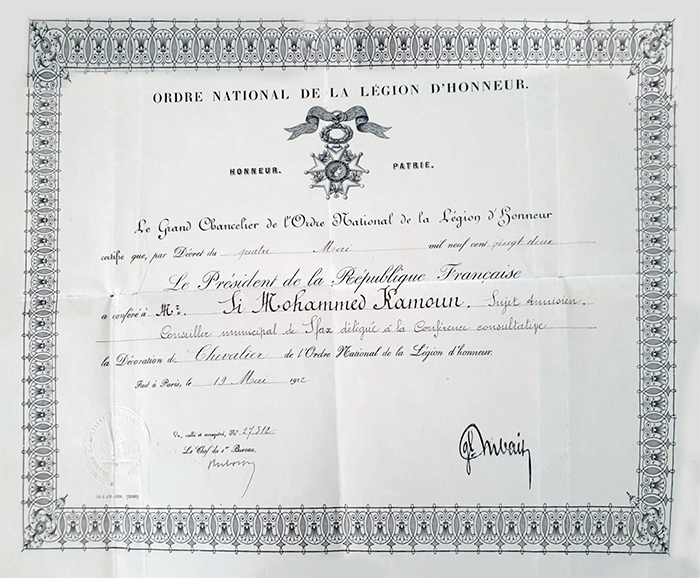 ORDRE NATIONAL DE LA LÉGION D'HONNEUR.
HONNEUR. PATRIE.
Le Grand Chancelier de l'Ordre National de la Légion d'Honneur
certifie que, par Décret du quatre Mai mil neuf cent vingt deux
Le Président de la République Française
a conféré à Mr. Si Mohammed Kamoun. Sujet tunisien,
Conseiller municipal de Sfax délégué à la Conférence consultative
la Décoration de Chevalier de l'Ordre National de la Légion d'honneur.
Fait à Paris, le 19 Mai 1922
Vu, scellé et enregistré, No 27,312
Le Chef du 1er Bureau,